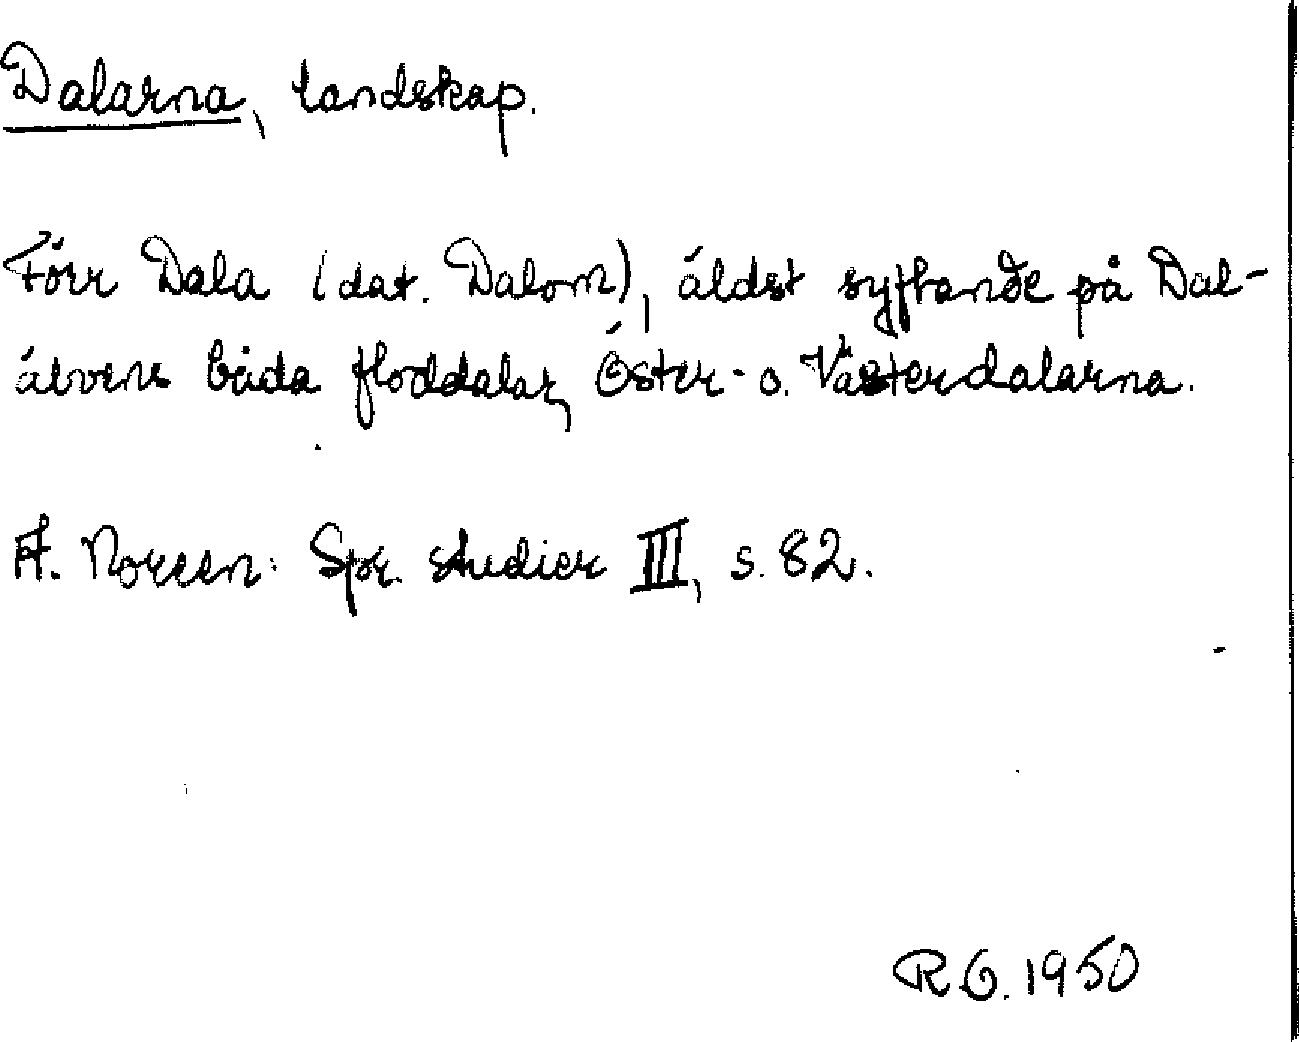 Dalarna, landskap.
Förr Dala (dat. Dalom), äldst syftande på Dal-
älvens båda floddalar, Öster- o. Västerdalarna.
A. Noreen: Spr. studier III, s. 82.
R.G. 1950